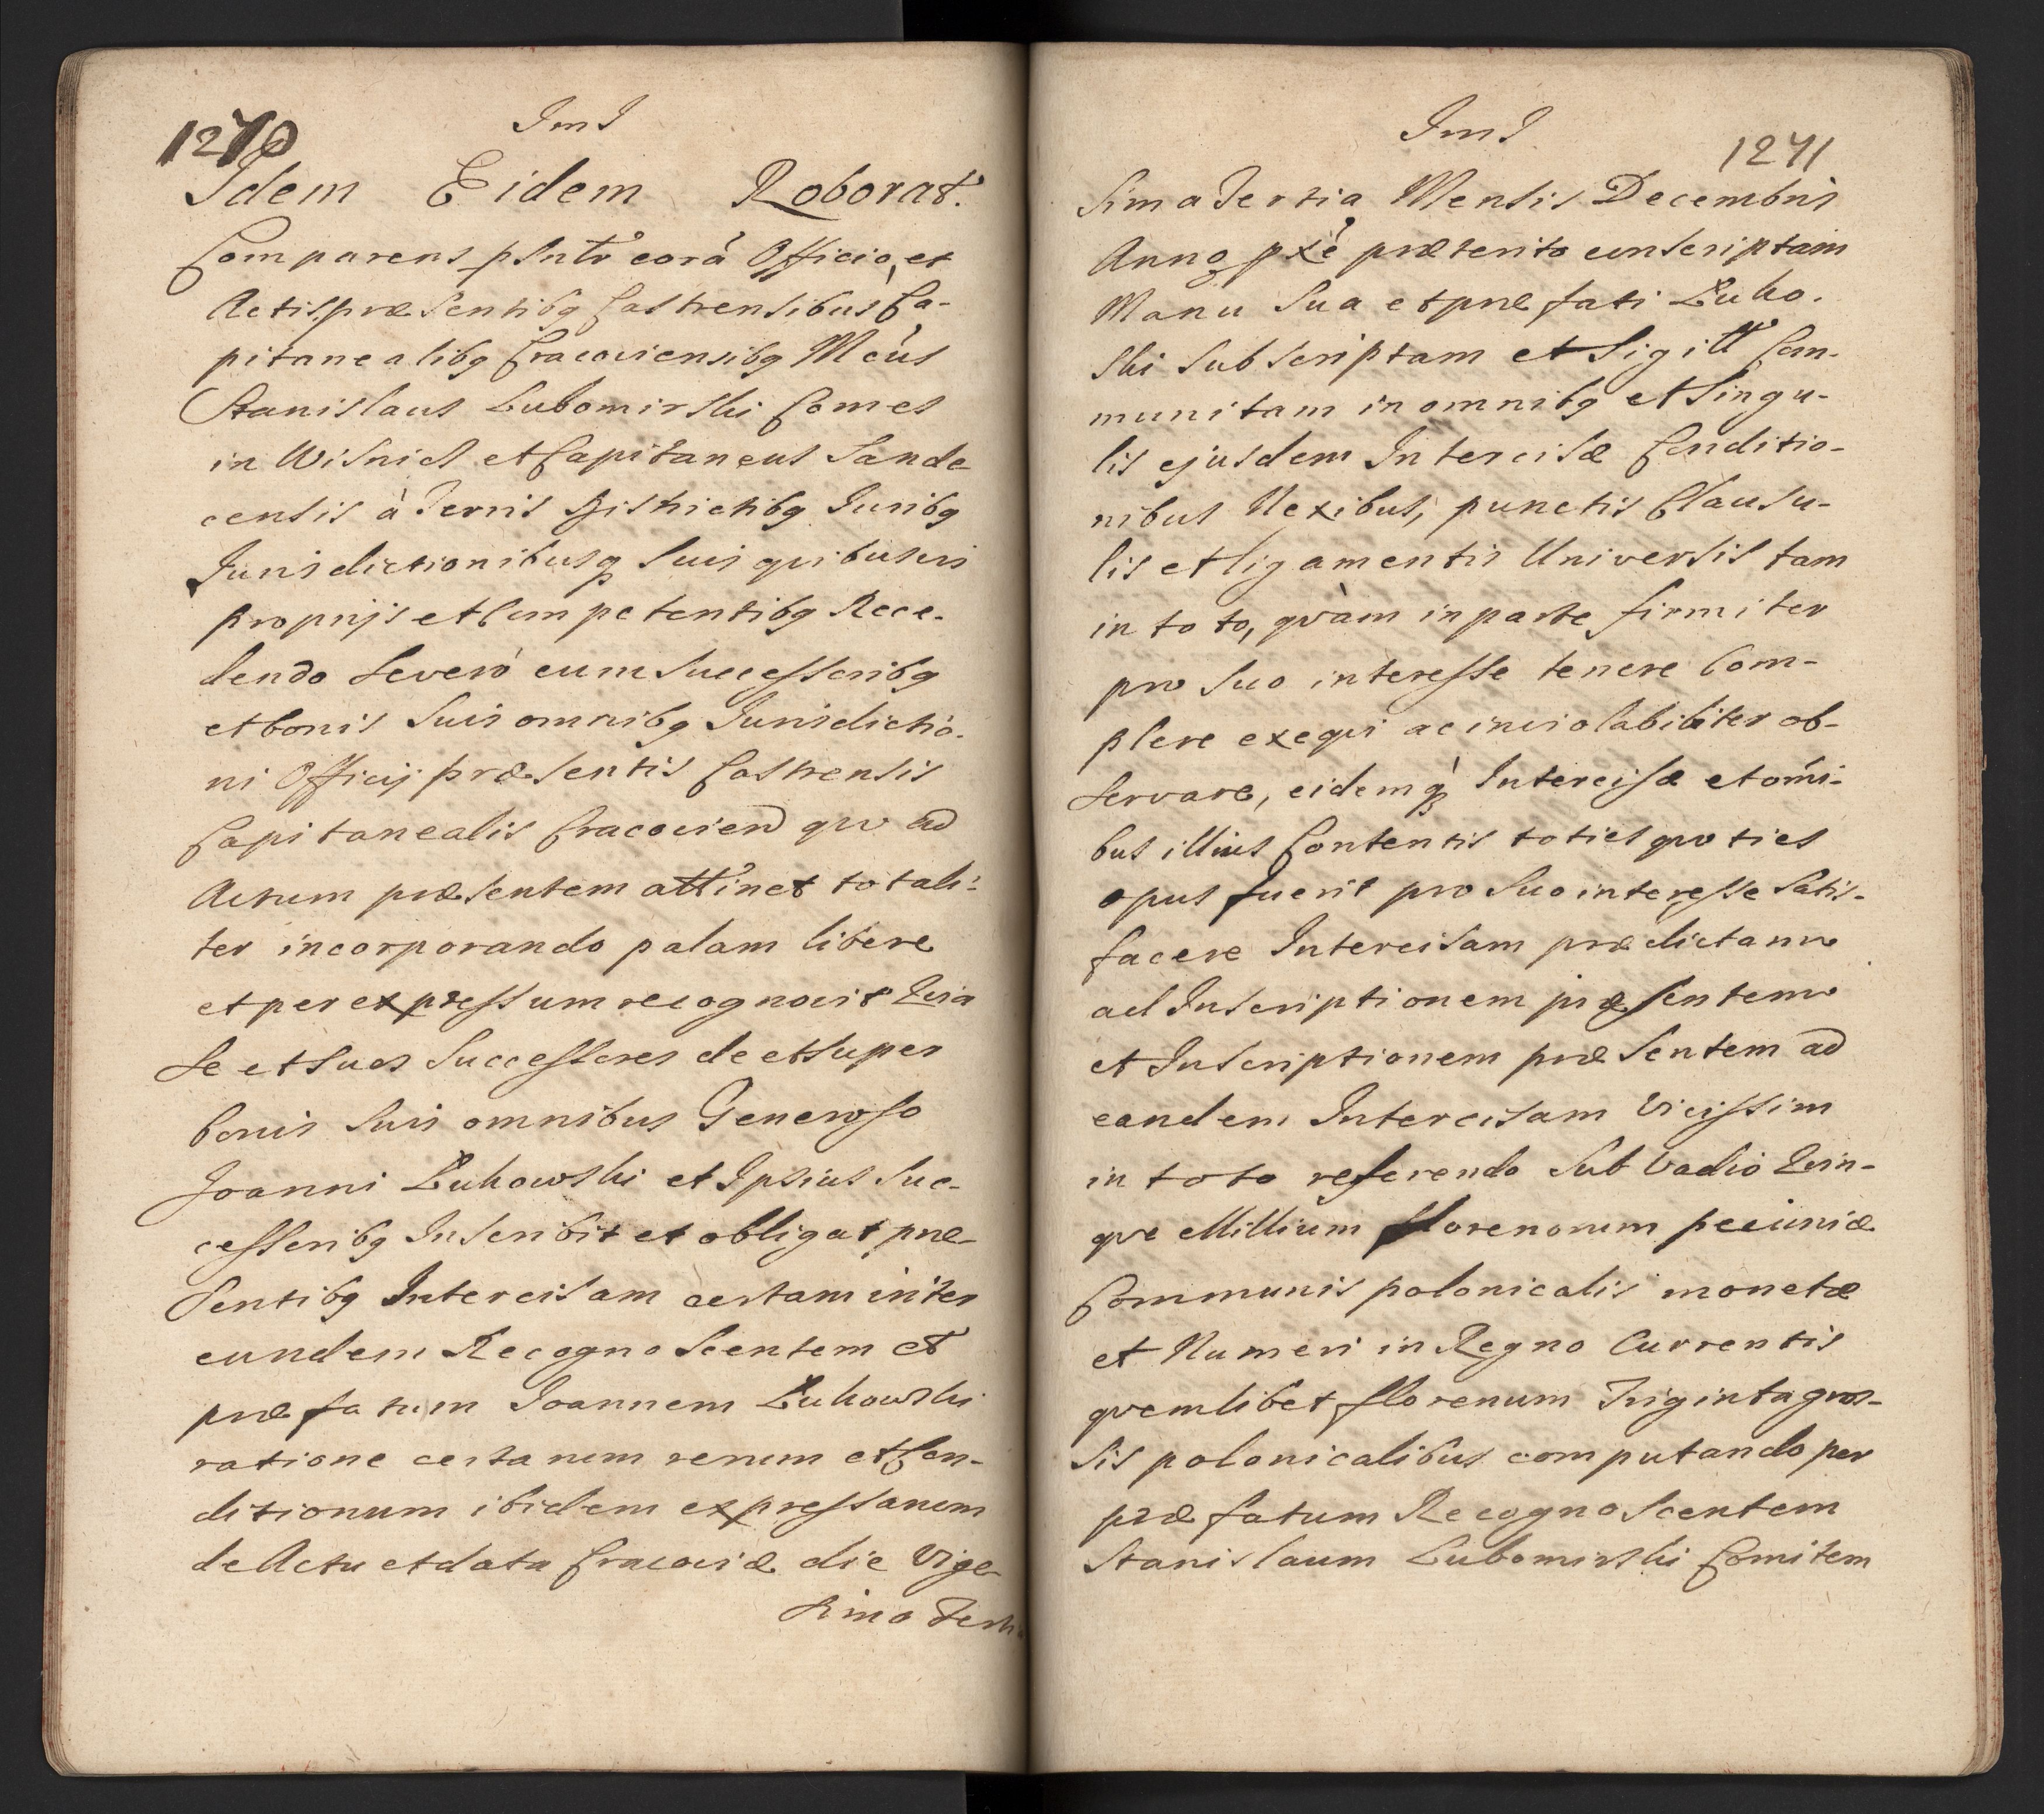 1270
Jm J
Idem Eidem Roborat.
Comparens psntr corā Officio, et
Actis præsentibq Castrensibus Ca-
pitanealibq Cracoviensibq Mcus
Stanislaus Lubomirski Comes
in Wisnicz et Capitaneus Sande
censis à Terris Districtibq Juribq
Jurisdictionibusq suis quibusvis
proprijs et Competentibq Rece-
dendo severò cum Successoribq
et bonis suis omnibq Jurisdictio-
ni Officij præsentis Castrensis
Capitanealis Cracovien quo ad
Actum præsentem attinet totali-
ter incorporando palam libere
et per expressum recognovit Quia
se et suos Successores de et super
bonis suis omnibus Generoso
Joanni Lukowski et Ipsius Suc-
cessoribq Inscribit et obligat præ-
sentibq Intercisam certam inter
eundem Recognoscentem et
præfatum Joannem Lukowski
ratione certarum rerum et Con-
ditionum ibidem expressarum
de Actu et data Cracoviæ die Vige-
sima Terti
Jm J
1271
sima Tertia Mensis Decembris
Anno pxe præterito conscriptam
Manu sua et præfati Luko-
ski subscriptam et Sigill Com-
munitam in omnibq et Singu-
lis ejusdem Intercisæ Conditio-
nibus Nexibus, punctis Clausu-
lis et ligamentis Universis tam
in toto, quàm in parte firmiter
pro suo interesse tenere Com-
plere exequi ac inviolabiliter ob-
servare, eidemq Intercisæ et omi-
bus illius Contentis toties quoties
opus fuerit pro suo interesse Satis-
facere Intercisam prædictam
ad Inscriptionem præsentem
et Inscriptionem præsentem ad
eandem Intercisam vicissim
in toto referendo sub vadio Quin-
que Millium florenorum pecuniæ
Communis polonicalis monetæ
et Numeri in Regno Currentis
quemlibet florenum Triginta gros-
sis polonicalibus computando per
præfatum Recognoscentem
Stanislaum Lubomirski Comitem